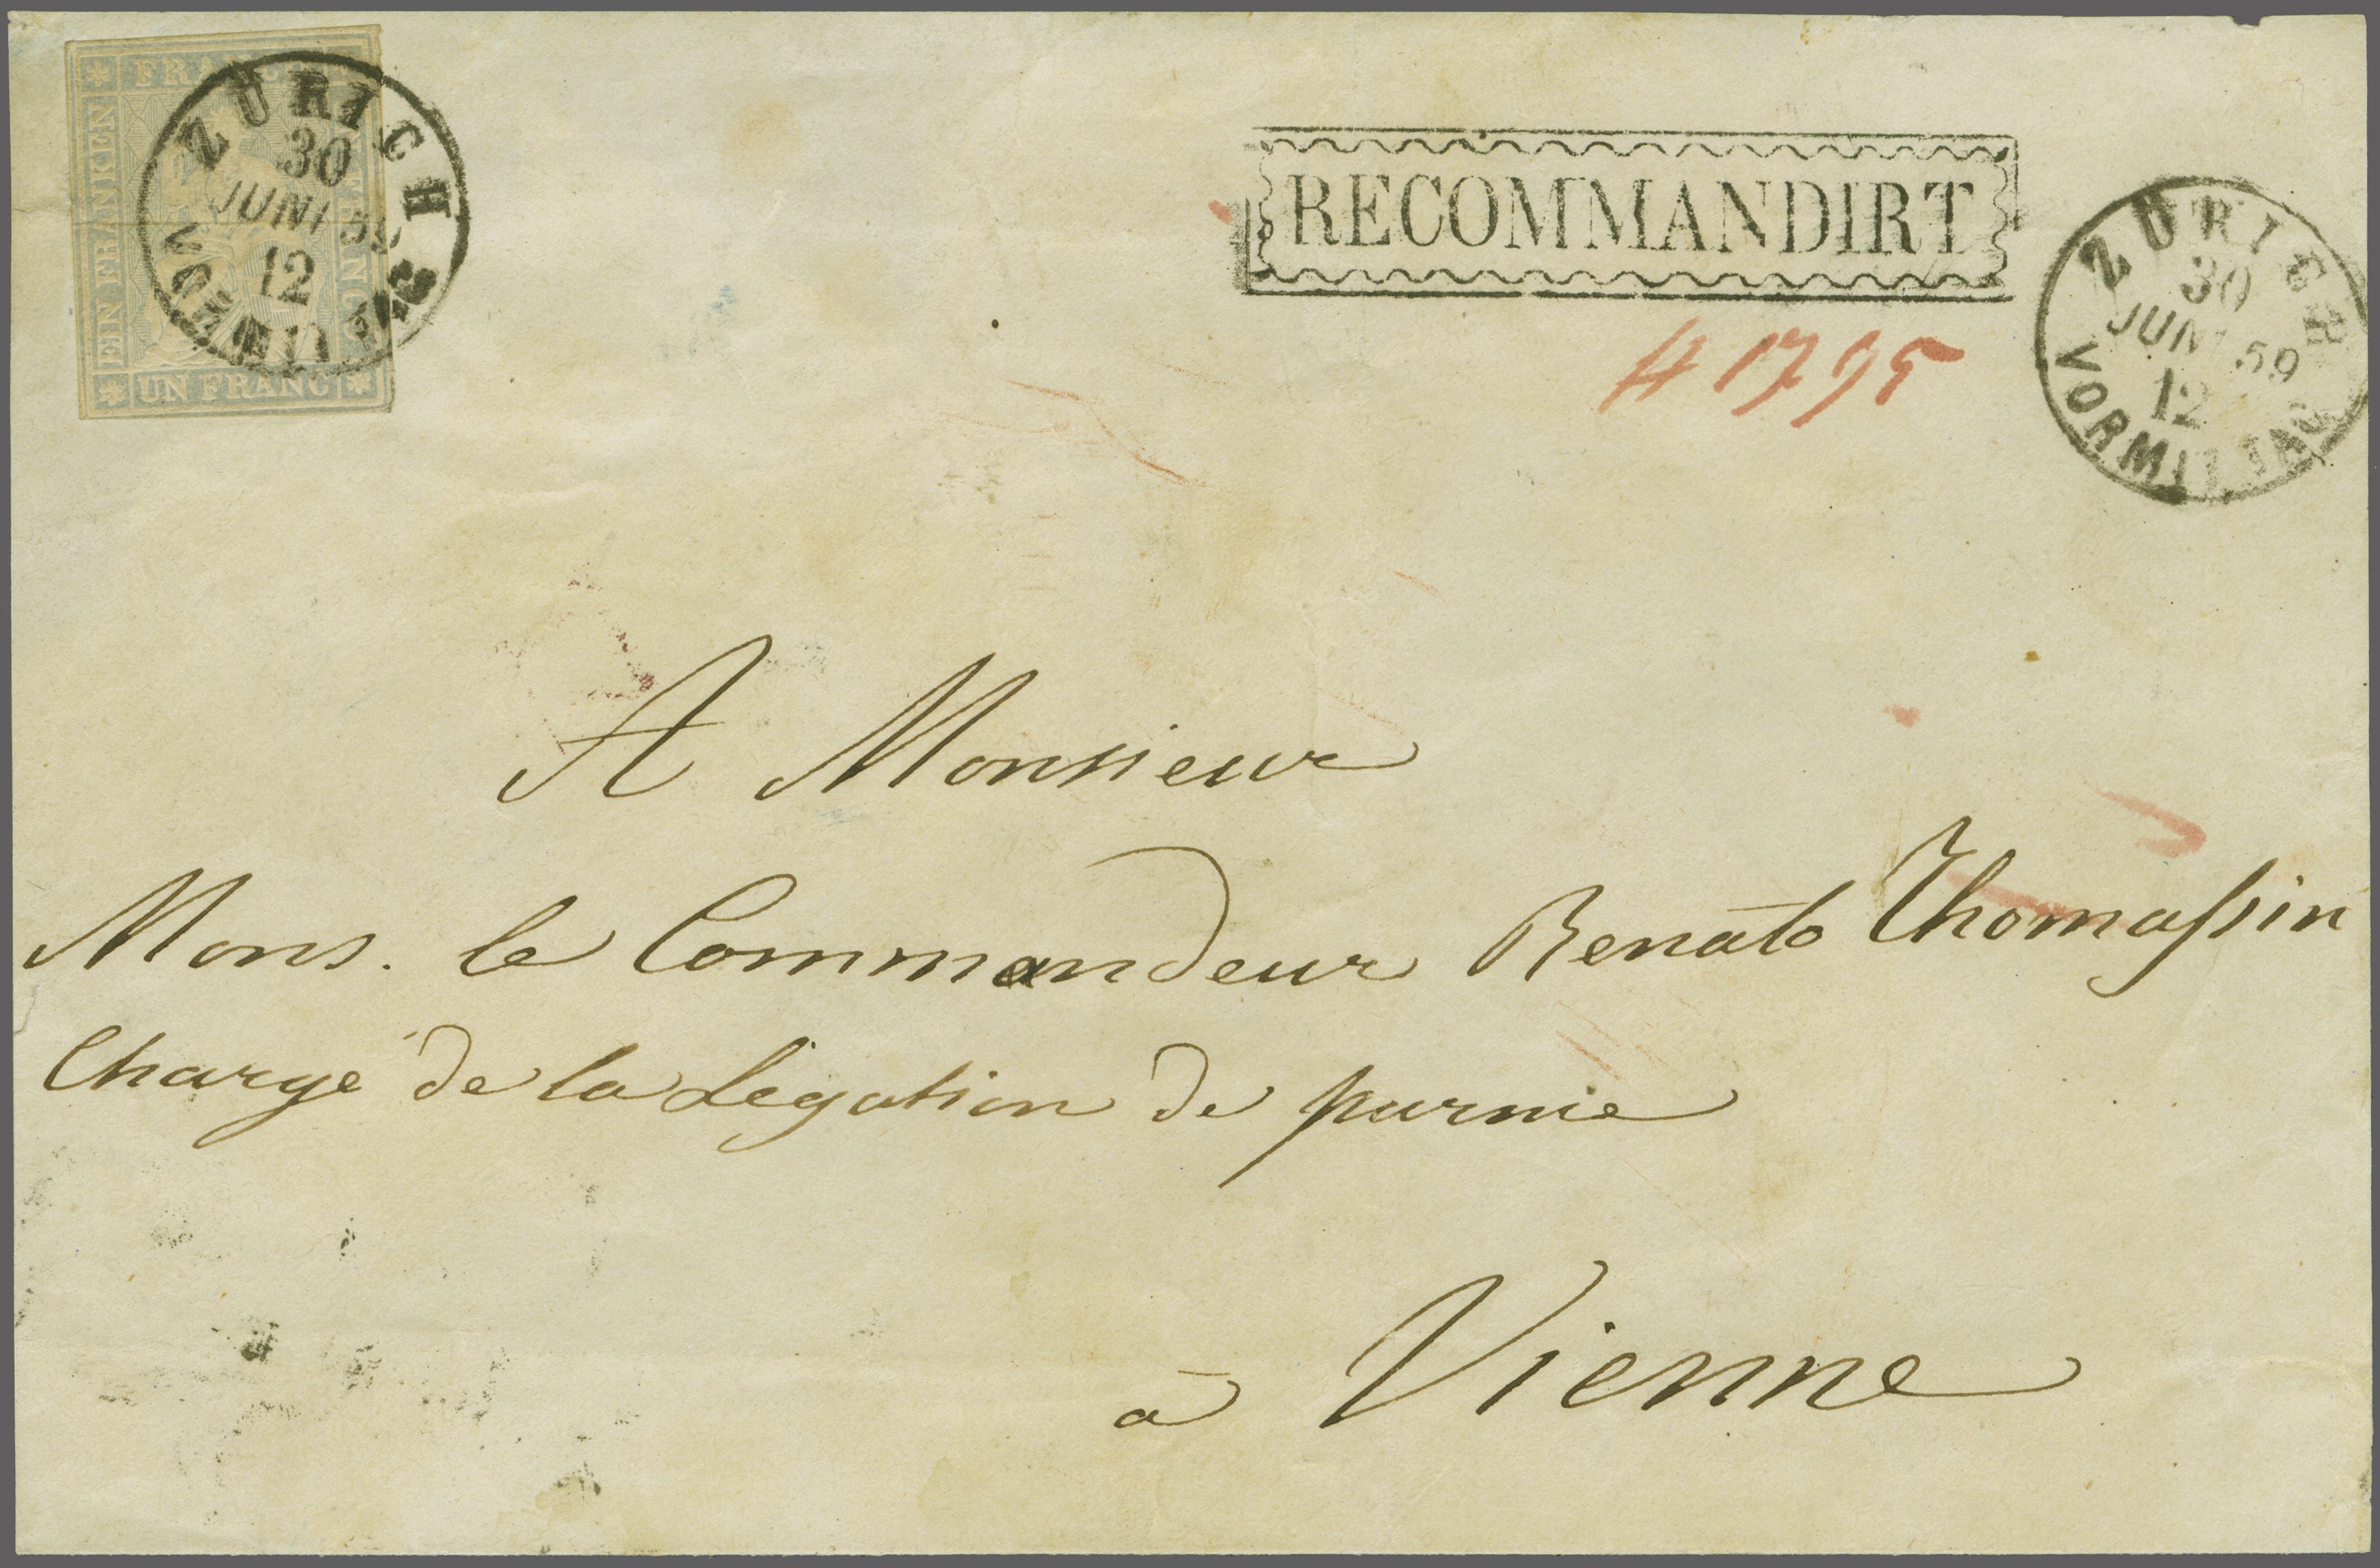 FRANCO
EIN FRANKEN
UN FRANC
ZÜRICH
30
JUNI 59
12
VORMITTAG
RECOMMANDIRT
ZÜRICH
30
JUNI 59
12
VORMITTAG
# 1795
A Monsieur
Mons. le Commandeur Renato Thomassin
Chargé de la Légation de parme
à Vienne